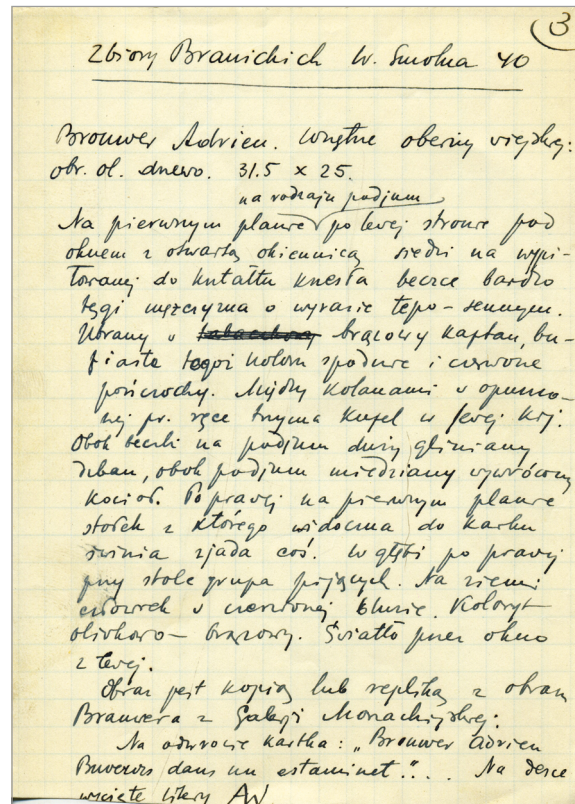 3
Zbiory Branickich W. Smolna 40
Brouwer Adrien. Wnętrze oberży wiejskiej:
obr. ol. drzewo. 31.5 x 25.
na rodzaju podjum
Na pierwszym planie po lewej stronie pod
oknem z otwartą okiennicą siedzi na wypi-
łowanej do kształtu krzesła beczce bardzo
tęgi mężczyzna o wyrazie tępo-sennym.
Ubrany w brązowy kaftan, bu-
fiaste tegoż koloru spodnie i czerwone
pończochy. Między kolanami w opuszczo-
nej pr. ręce trzyma kufel w lewej kij.
Obok beczki na podjum duży gliniany
dzban, obok podjum miedziany wywrócony
kocioł. Po prawej na pierwszym planie
z którego widoczna do karku
świnia zjada coś. W głębi po prawej
przy stole grupa pijących. Na ziemi
człowiek w czerwonej bluzie. Koloryt
oliwkowo-brązowy. Światło przez okno
z lewej.
Obraz jest kopią lub repliką z obrazu
Brauwera z Galerji Monachijskiej.
Na odwrocie kartka: „Brouwer Adrien
Buveurs dans un estaminet"... Na desce
wycięte litery AV